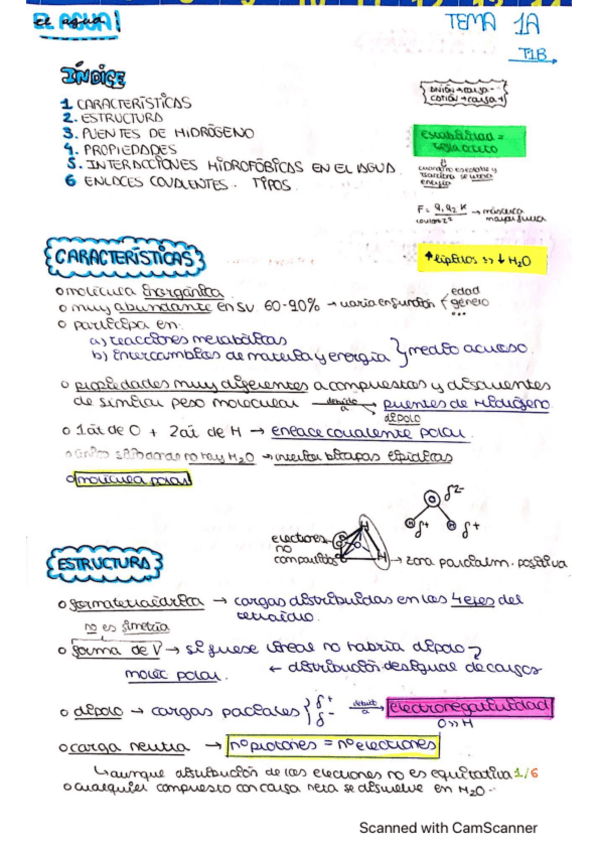 EL AGUA!
TEMA 1A
T1B
ÍNDICE
1 CARACTERÍSTICAS
2. ESTRUCTURA
3. PUENTES DE HIDRÓGENO
4. PROPIEDADES
5. INTERACCIONES HIDROFÓBICAS EN EL AGUA
6 ENLACES COVALENTES. TIPOS.
ANIÓN → carga -
CATIÓN → carga +
estabilidad =
energía
CARACTERÍSTICAS
↑ lípidos >> ↓ H2O
o molécula inorgánica
o muy abundante en SV 60-90% → varía en función { edad
género
...
o participa en:
a) reacciones metabólicas
b) Intercambios de materia y energía } medio acuoso.
o propiedades muy diferentes a compuestos y disolventes
de similar peso molecular debido a → puentes de Hidrógeno
dipolo
o 1át de O + 2át de H → enlace covalente polar.
no hay H2O → bicapas lipídicas
o molécula polar
δ2-
O
H δ+ H δ+
electrones
no
compartidos
→ zona parcialm. positiva
ESTRUCTURA
o forma tetraédrica → cargas distribuidas en los 4 ejes del
tetraedro.
no es simetría
o forma de V → si fuese lineal no habría dipolo
moléc polar. ← distribución desigual de cargas
o dipolo → cargas parciales { δ+ δ- debido a → electronegatividad
O >> H
o carga neutra → nº protones = nº electrones
↳ aunque distribución de los electrones no es equitativa 1/6
o Cualquier compuesto con carga neta se disuelve en H2O.
Scanned with CamScanner